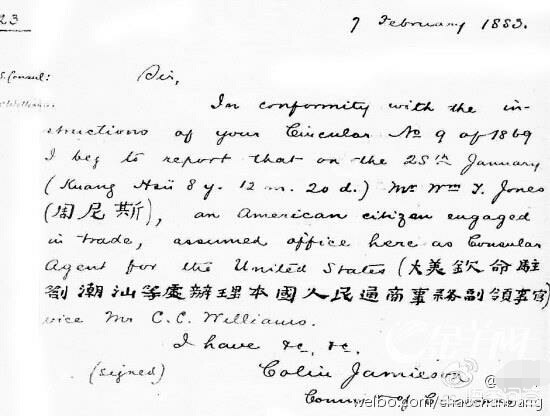 23
7 February 1883.
S. Consul:
Sir,
In conformity with the in-
structions of your Circular No 9 of 1869
I beg to report that on the 28th January
(Kuang Hsü 8 y. 12 m. 20 d.) Mr Wm Y. Jones
(周尼斯), an American citizen engaged
in trade, assumed office here as Consular
Agent for the United States (大美欽命駐
劄潮汕等處辦理本國人民通商事務副領事官)
vice Mr C. C. Williams.
I have &c, &c.
(signed) Colin Jamieson @
Commr of Customs